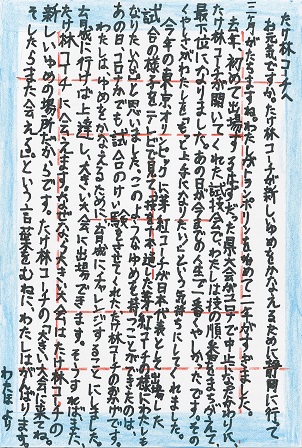 たけ林コーチへ
お元気ですか。たけ林コーチが新しいゆめをかなえるために静岡に行って
三ケ月がたちますね。わたしがトランポリンを始めて二年がすぎました。
去年、初めて出場するはずだった県大会がコロナで中止になったかわりに、
たけ林コーチが開いてくれた試技会で、わたしは技の順番をまちがえて、
最下位になりました。あの日が今までの人生で一番くやしかったです。その
くやしさがわたしを「もっと上手になりたい」という気持ちにしてくれました。
今年の東京オリンピックに芽紅コーチが日本代表として出場した
試合の様子をテレビで見て、「将来本道た芽紅コーチの様にわたしも
なりたいな。」と思いました。このようなゆめを持つことができたのは、
あの日、コロナかでも、試合のけい験をさせてくれた、たけ林コーチのおかげです。
わたしはゆめをかなえるために、育成にチャレンジすることにしました。
育成に行けば上達し、大きい大会に出場できます。そうすればまた、
たけ林コーチに会えます。なぜなら、大きい大会は、たけ林コーチの
新しいゆめの場所だからです。たけ林コーチの「大きい大会に来てね。
そしたらまた会えるよ。」という言葉をむねに、わたしはがんばります。
わたほより